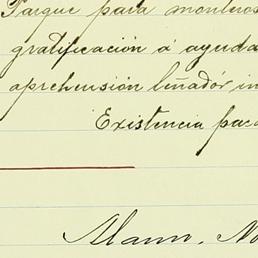 Parque para monteros
gratificación á ayuda
aprehensión leñador in
Existencia para
Alamo, No